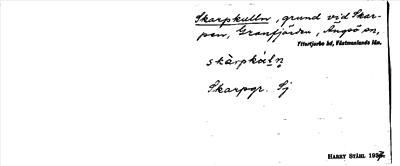 Skarpkulln, grund vid Skar-
pen, Granfjärden, Ängsö sn,
Yttertjurbo hd, Västmanlands län.
skàrpkot̀n
Skarpgr. Sj
HARRY STÅHL 1937.